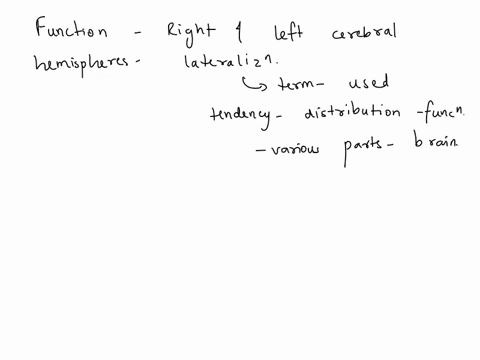 Function - Right & left cerebral
hemispheres - lateralizn.
↳ term - used
tendency - distribution - funcn.
- various parts - brain